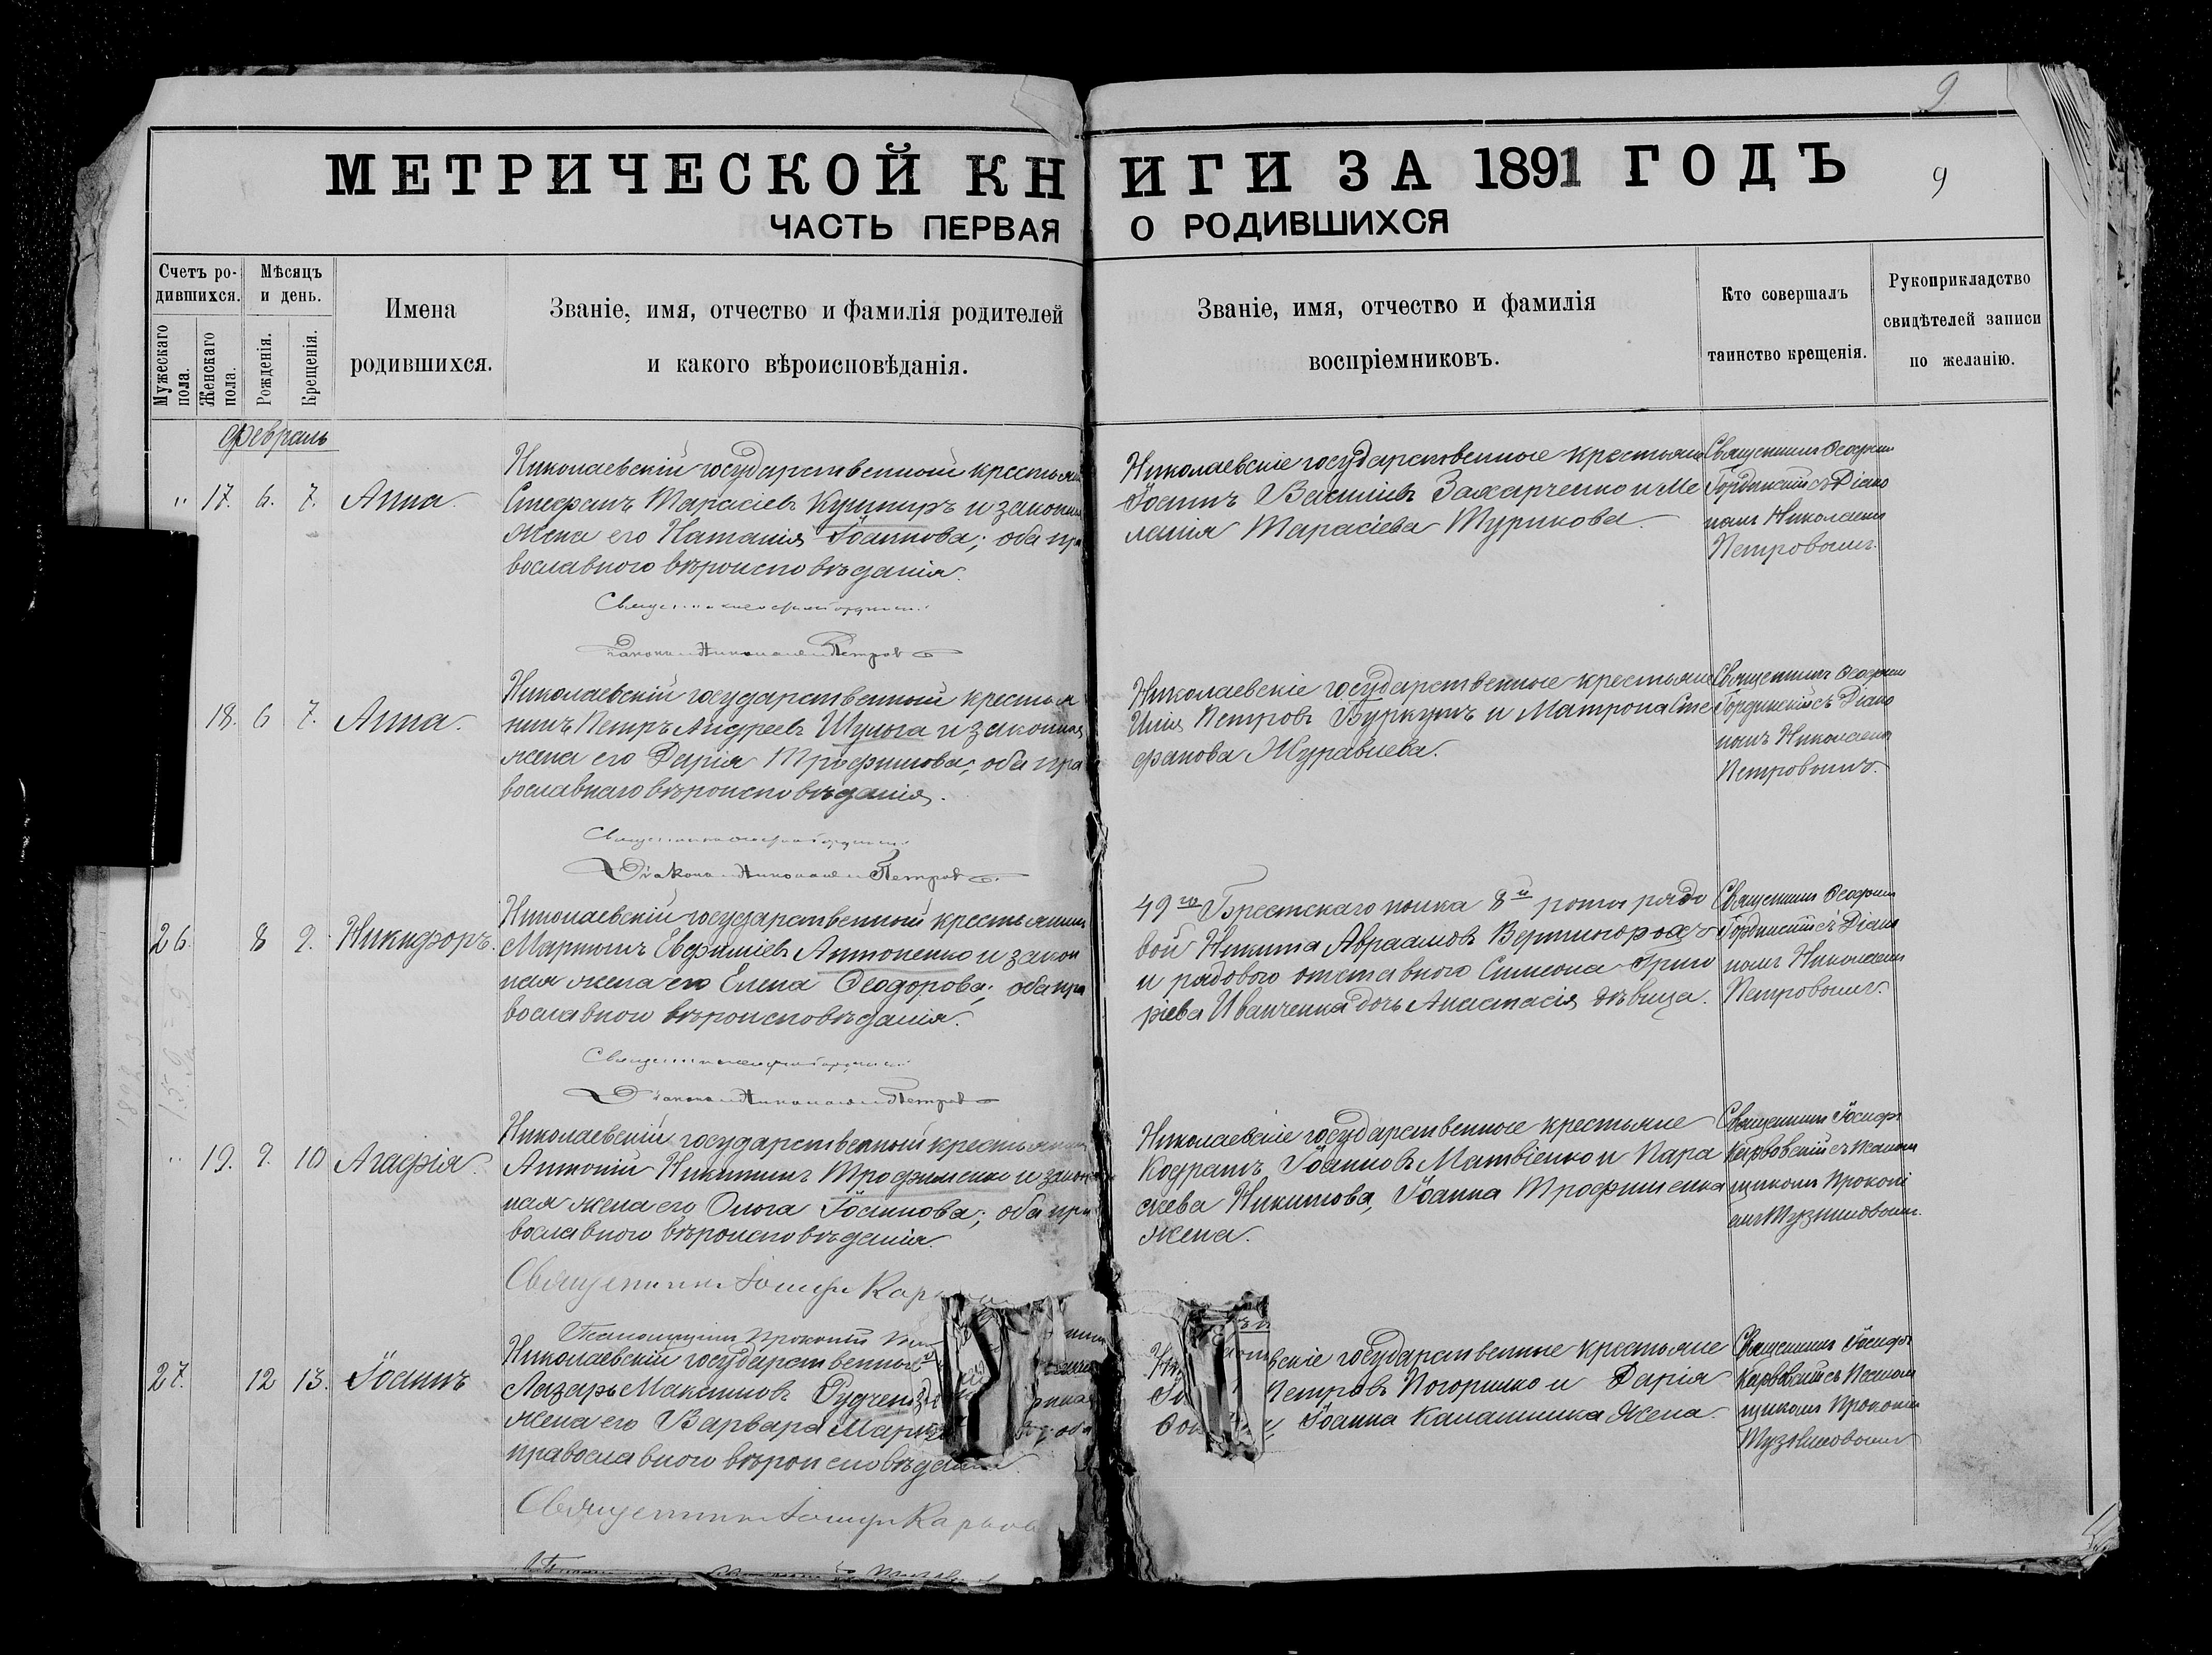 9
МЕТРИЧЕСКОЙ КНИГИ ЗА 1891 ГОДЪ
9
ЧАСТЬ ПЕРВАЯ О РОДИВШИХСЯ
Счетъ ро-
дившихся.
Мужескаго
пола.
Женскаго
пола.
Мѣсяцъ
и день.
Рожденія.
Крещенія.
Имена
родившихся.
Званіе, имя, отчество и фамилія родителей
и какого вѣроисповѣданія.
Званіе, имя, отчество и фамилія
воспріемниковъ.
Кто совершалъ
таинство крещенія.
Рукоприкладство
свидѣтелей записи
по желанію.
Февраль
" 17. 6. 7. Анна.
Николаевскій государственный крестьян
Стефанъ Тарасіевъ Кушниръ и законн
жена его Наталія Іоаннова; оба пра
вославного вѣроисповѣданія.
Діаконъ Николай Петров
Николаевскіе государственные крестьяне
Іоаннъ Васильевъ Захарченко и Ме
ланія Тарасіева Турикова.
Священникъ
съ Діако
номъ Николаемъ
Петровымъ.
18. 6 7. Анна.
Николаевскій государственный крестья
нинъ Петръ Андреевъ Шульга и законная
жена его Дарія Трофимова; оба пра
вославнаго вѣроисповѣданія.
Діаконъ Николай Петров
Николаевскіе государственные крестьяне
Илія Петровъ Буркутъ и Матрона Сте
фанова Журавлева.
Священникъ
съ Діако
номъ Николаемъ
Петровымъ.
26. 8 9. Никифоръ.
Николаевскій государственный крестьянинъ
Мартинъ Евфиміевъ Антоненко и закон
ная жена его Елена Ѳеодорова; оба пра
вославного вѣроисповѣданія.
Діаконъ Николай Петров
49го Брестскаго полка 8й роты рядо
вой Никита Авраамовъ
и рядового отставного Симеона Григо
ріева Иванченка дочь Анастасія дѣвица.
Священникъ
съ Діако
номъ Николаемъ
Петровымъ.
" 19. 9. 10 Агафія.
Николаевскій государственный крестьянин
Антоній Никитинъ Трофименко и закон
ная жена его Ольга Іоаннова; оба пра
вославного вѣроисповѣданія.
Священникъ Іосифъ
Псаломщикъ Прокопій
Николаевскіе государственные крестьяне
Кодратъ Іоанновъ Матвіенко и Пара
скева Никитова, Іоанна Трофименка
жена.
Священникъ Іосифъ
съ Псалом
щикомъ Прокопі
емъ
27. 12 13. Іоаннъ
Николаевскій государственный
Лазарь Максимовъ
жена его Варвара
православного вѣроисповѣданія.
Священникъ Іосифъ
вскіе государственные крестьяне
Петровъ Погорилко и Дарія
Іоанна Калашника жена.
Священникъ Іосифъ
съ Псалом
щикомъ